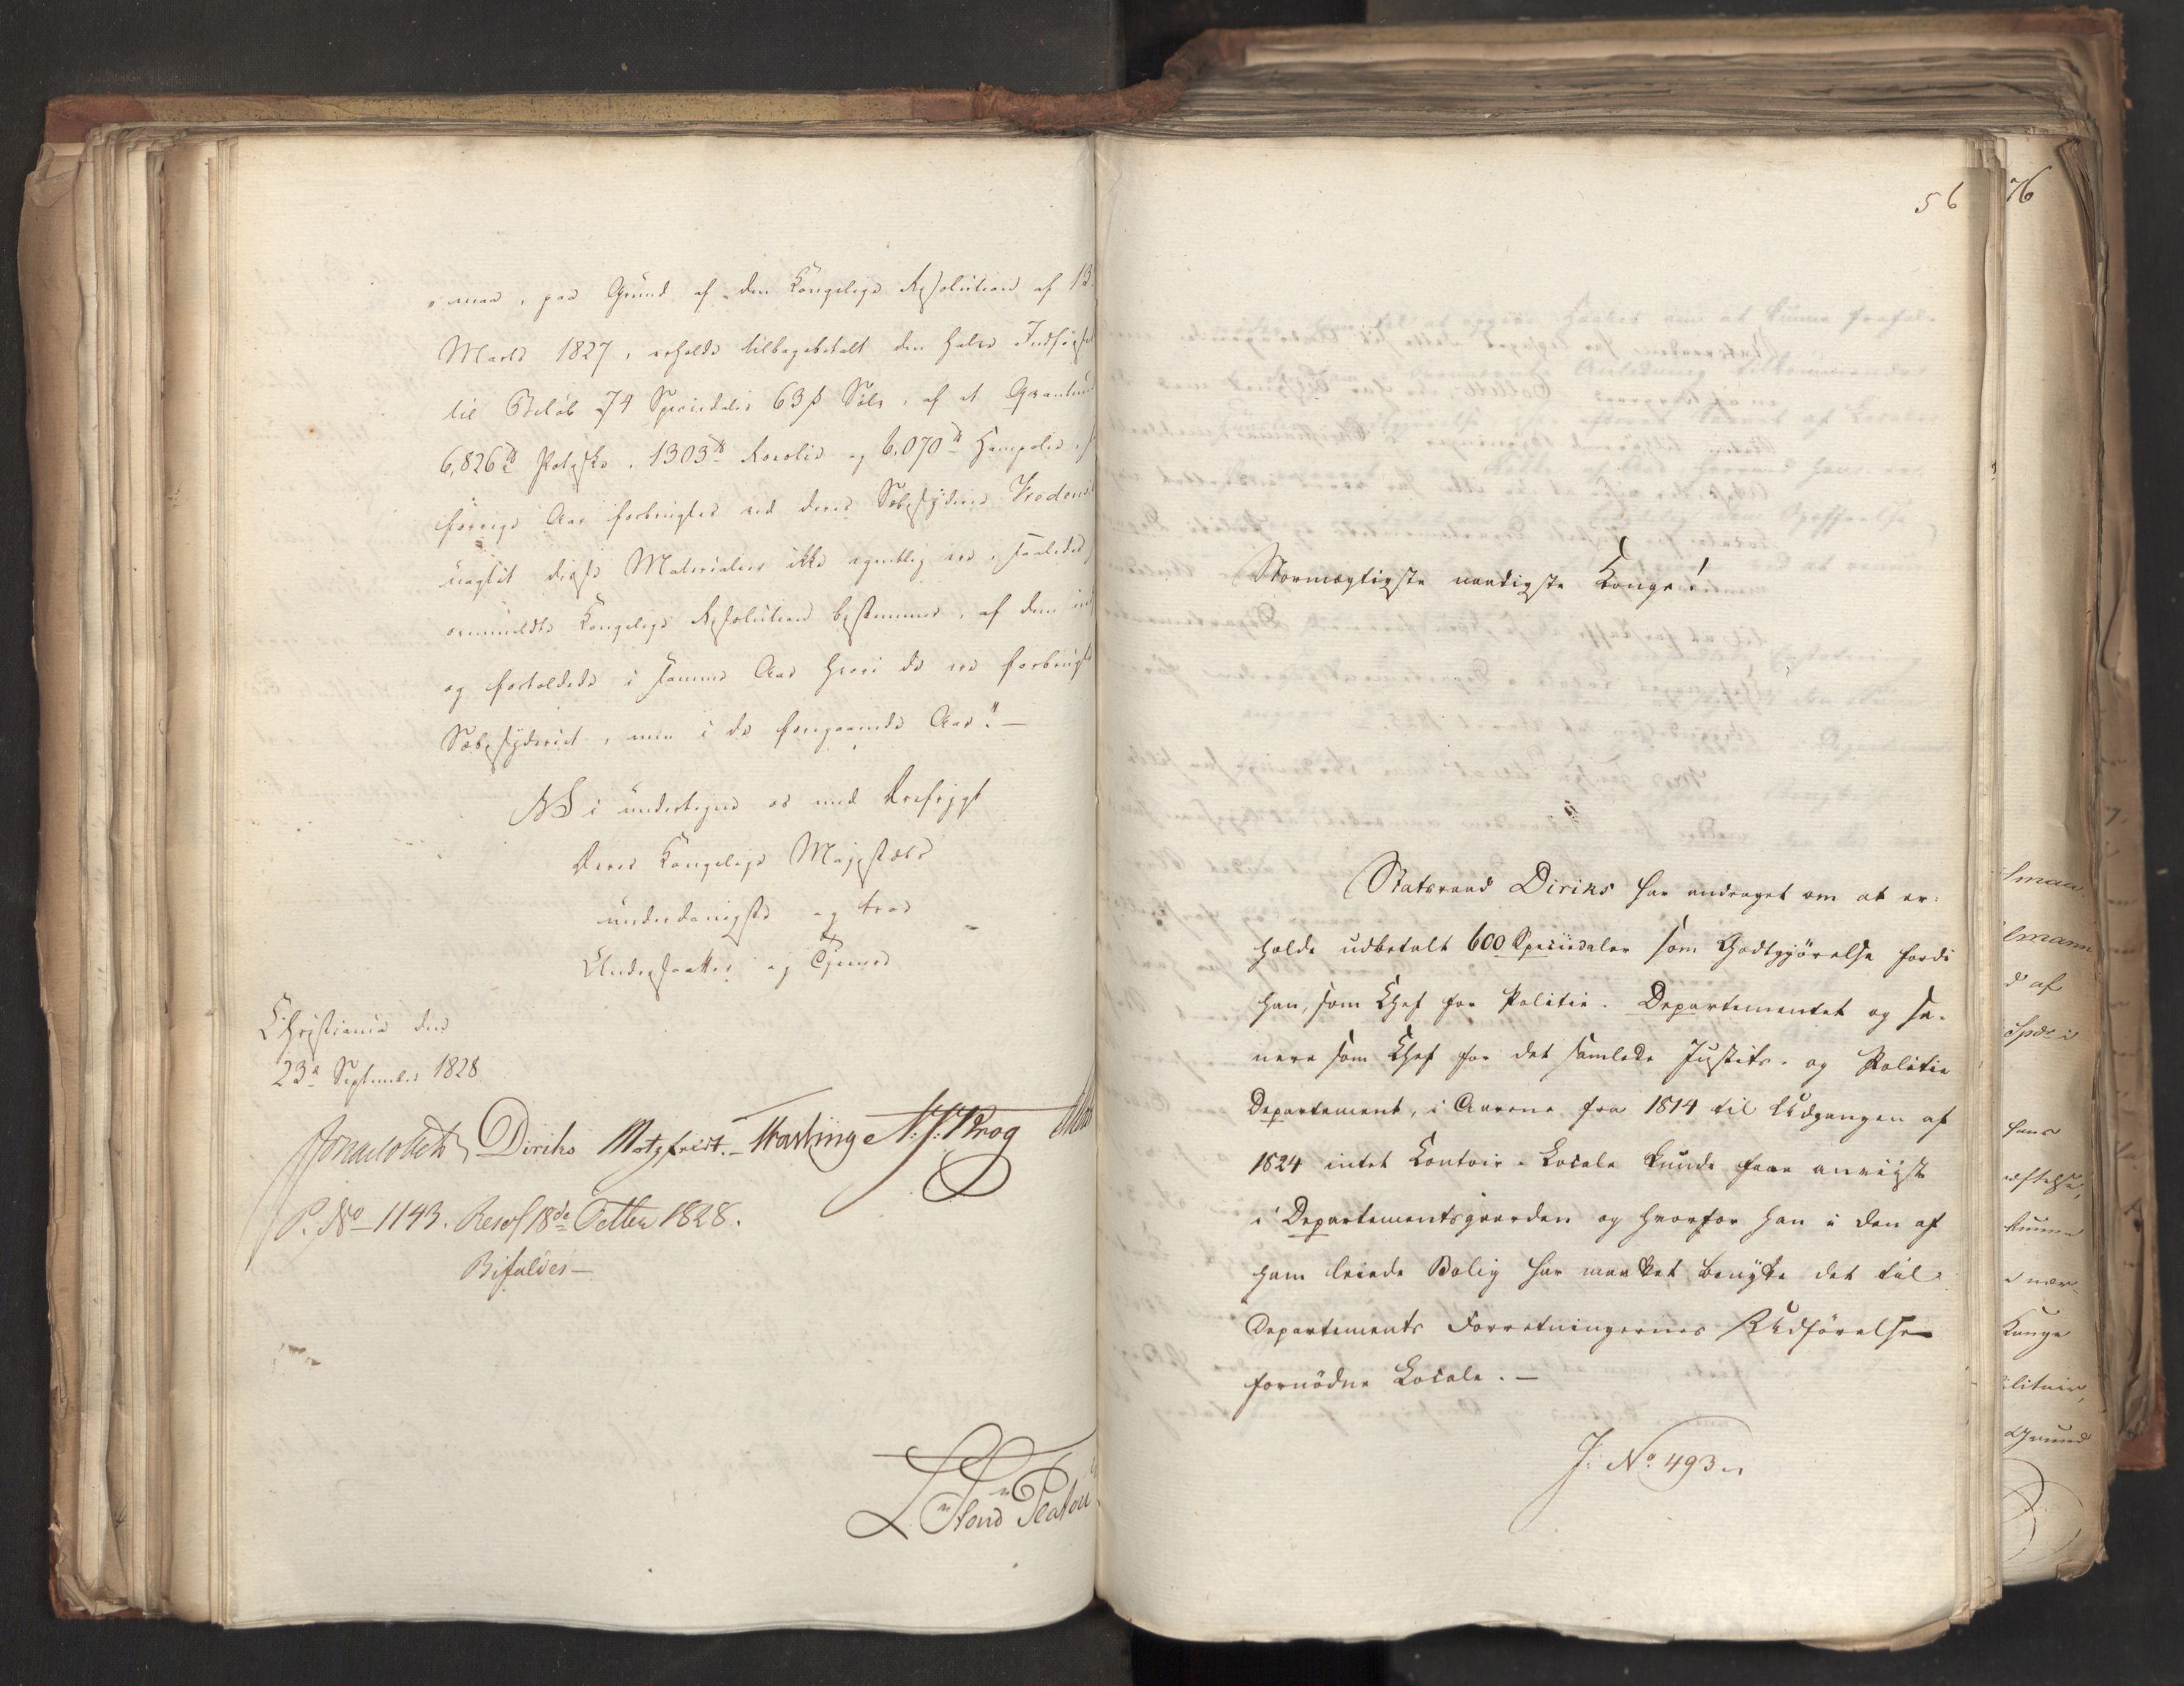 maa, paa Grund af den Kongelige Resolution af 13
Marts 1827, erholde tilbagebetalt den halve Indførsel
til Beløb 74 Speciedaler 63 ß Sølv, af et Qvantum
6,826 ℔ Potaske, 1303 ℔ og 6,070 ℔
forrige Aar forbrugtes ved deres Sæbesyderie
uagtet disse Materialier ikke egentlig ere, saaledes
ovenmeldte Kongelige Resolution bestemmer, af dem
og fortoldede i samme Aar hvori de ere forbrugte
Sæbesyderiet, men i de foregaaende Aar". —
Vi undertegne os med Ærefrygt
Deres Kongelige Majestæts
underdanigste og troe
Undersaatter og Tjenere
Christiania den
23de September 1828
Diriks Motzfeldt. N. J. Krog
P. No 1143. Resol. 18de Octbr 1828.
Bifaldes —
56
76
Stormægtigste naadigste Konge!
Statsraad Diriks har andraget om at er-
holde udbetalt 600 Speciedaler som Godtgjörelse fordi
han, som Chef for Politie-Departementet og se-
nere som Chef for det samlede Justits- og Politie
Departement, i Aarene fra 1814 til Udgangen af
1824 intet Contoir-Locale kunde faae anviist
i Departementsgaarden og hvorfor han i den af
ham leiede Bolig har maattet benytte det til
Departements Forretningernes Udförelse
fornödne Locale. —
J: No 493